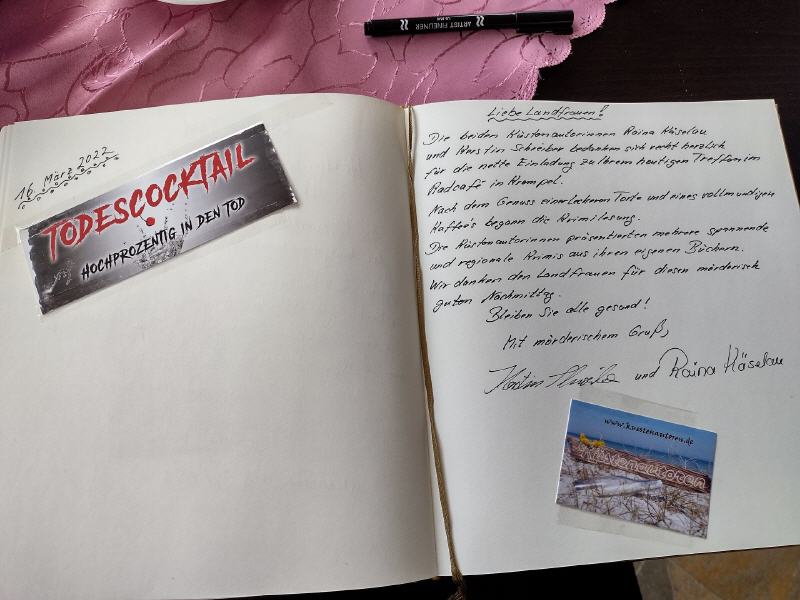 ARTIST FINELINER
16. März 2022
TODESCOCKTAIL
HOCHPROZENTIG IN DEN TOD
Liebe Landfrauen!
Die beiden Küstenautorinnen Raina Käselau
und Kerstin Schreiber bedanken sich recht herzlich
für die nette Einladung zu Ihrem heutigen Treffen im
Radcafé in Krempel.
Nach dem Genuss einer leckeren Torte und eines vollmundigen
Kaffee's begann die Krimilesung.
Die Küstenautorinnen präsentierten mehrere spannende
und regionale Krimis aus ihren eigenen Büchern.
Wir danken den Landfrauen für diesen mörderisch
guten Nachmittag.
Bleiben Sie alle gesund!
Mit mörderischem Gruß,
und Raina Käselau
www.kuestenautoren.de
Küstenautoren